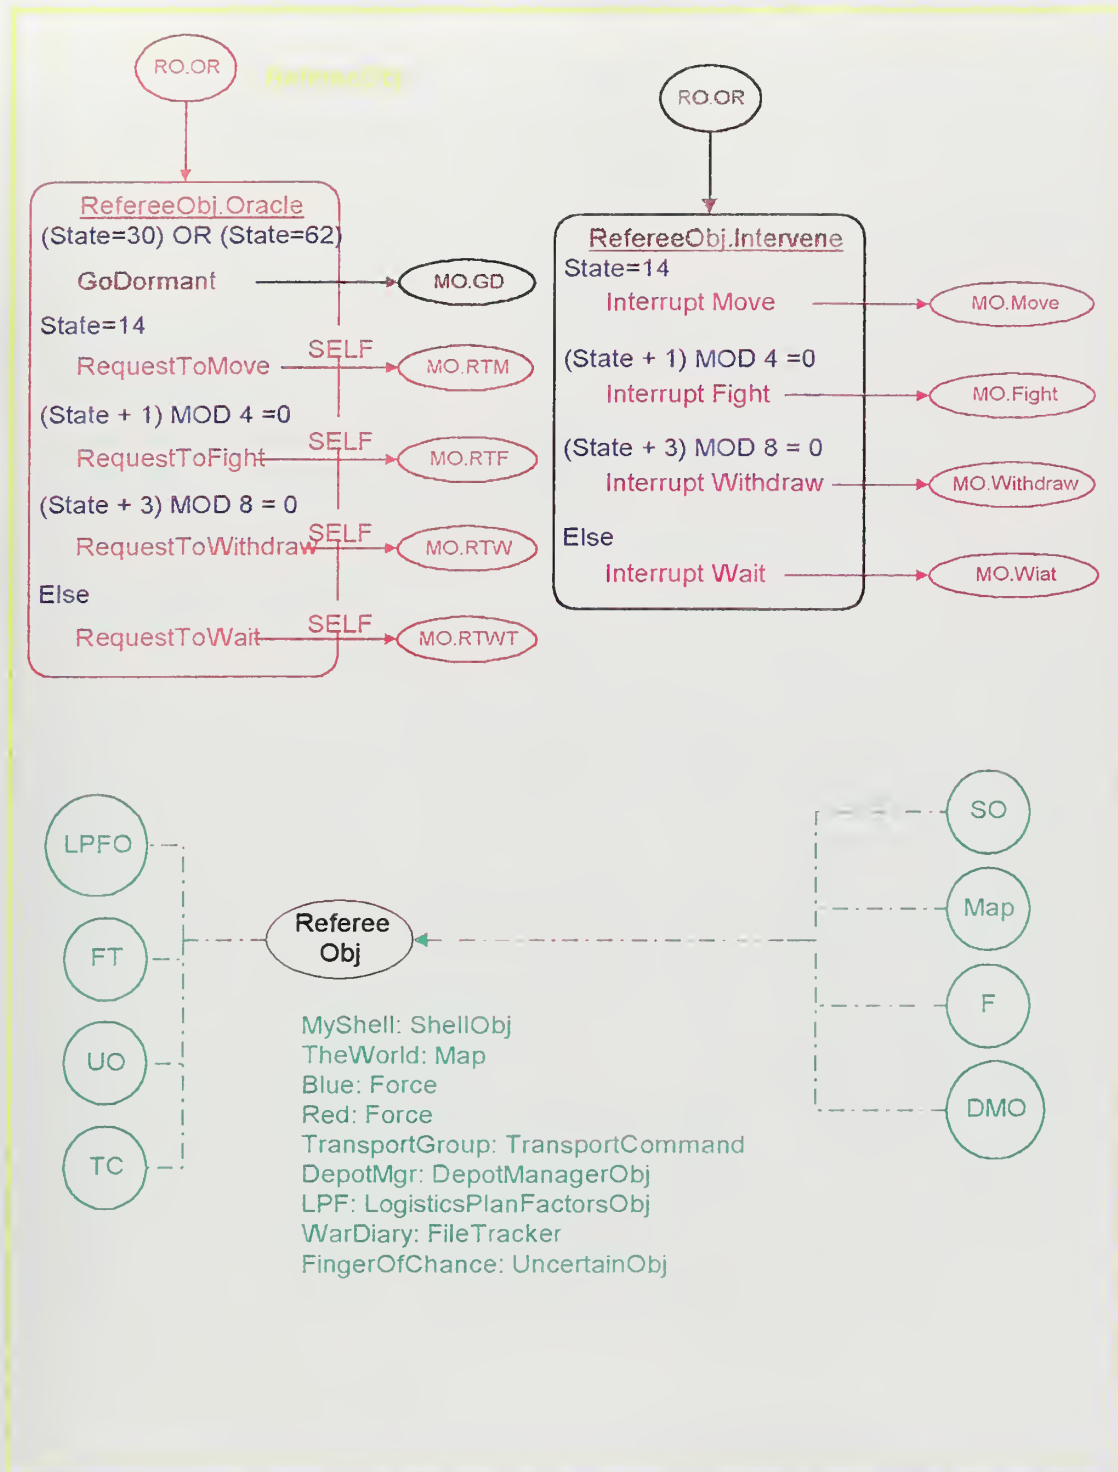 RO.OR
RefereeObj
RefereeObj.Oracle
(State=30) OR (State=62)
GoDormant
MO.GD
State=14
RequestToMove
SELF
MO.RTM
(State + 1) MOD 4 =0
RequestToFight
SELF
MO.RTF
(State + 3) MOD 8 = 0
RequestToWithdraw
SELF
MO.RTW
Else
RequestToWait
SELF
MO.RTWT
RO.OR
RefereeObj.Intervene
State=14
Interrupt Move
MO.Move
(State + 1) MOD 4 =0
Interrupt Fight
MO.Fight
(State + 3) MOD 8 = 0
Interrupt Withdraw
MO.Withdraw
Else
Interrupt Wait
MO.Wiat
LPFO
FT
UO
TC
Referee
Obj
SO
Map
F
DMO
MyShell: ShellObj
TheWorld: Map
Blue: Force
Red: Force
TransportGroup: TransportCommand
DepotMgr: DepotManagerObj
LPF: LogisticsPlanFactorsObj
WarDiary: FileTracker
FingerOfChance: UncertainObj